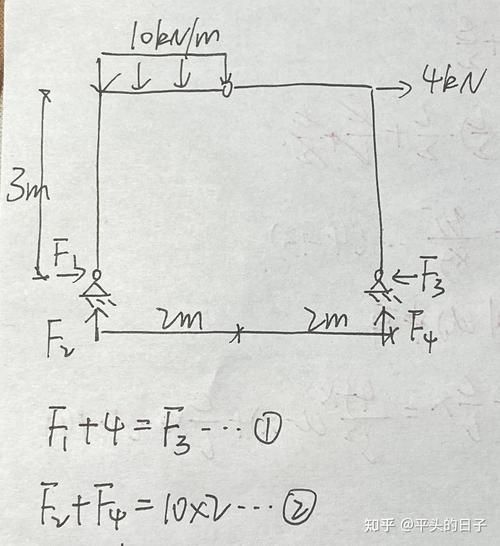 10kN/m
4kN
3m
F₁
F₃
2m
2m
F₂
F₄
F₁+4=F₃---①
F₂+F₄=10×2---②
知乎 @平头的日子